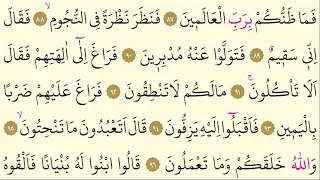 فَمَا ظَنُّكُمْ بِرَبِّ الْعَالَمِينَ ﴿٨٧﴾ فَنَظَرَ نَظْرَةً فِى النُّجُومِۙ ﴿٨٨﴾ فَقَالَ
اِنِّى سَقِيمٌ ﴿٨٩﴾ فَتَوَلَّوْا عَنْهُ مُدْبِرِينَ ﴿٩٠﴾ فَرَاغَ اِلٰٓى اٰلِهَتِهِمْ فَقَالَ
اَلَا تَأْكُلُونَۚ ﴿٩١﴾ مَالَكُمْ لَا تَنْطِقُونَ ﴿٩٢﴾ فَرَاغَ عَلَيْهِمْ ضَرْبًا
بِالْيَمِينِ ﴿٩٣﴾ فَاَقْبَلُٓوا اِلَيْهِ يَزِفُّونَ ﴿٩٤﴾ قَالَ اَتَعْبُدُونَ مَا تَنْحِتُونَۙ ﴿٩٥﴾
وَاللّٰهُ خَلَقَكُمْ وَمَا تَعْمَلُونَ ﴿٩٦﴾ قَالُوا ابْنُوا لَهُ بُنْيَانًا فَاَلْقُوهُ